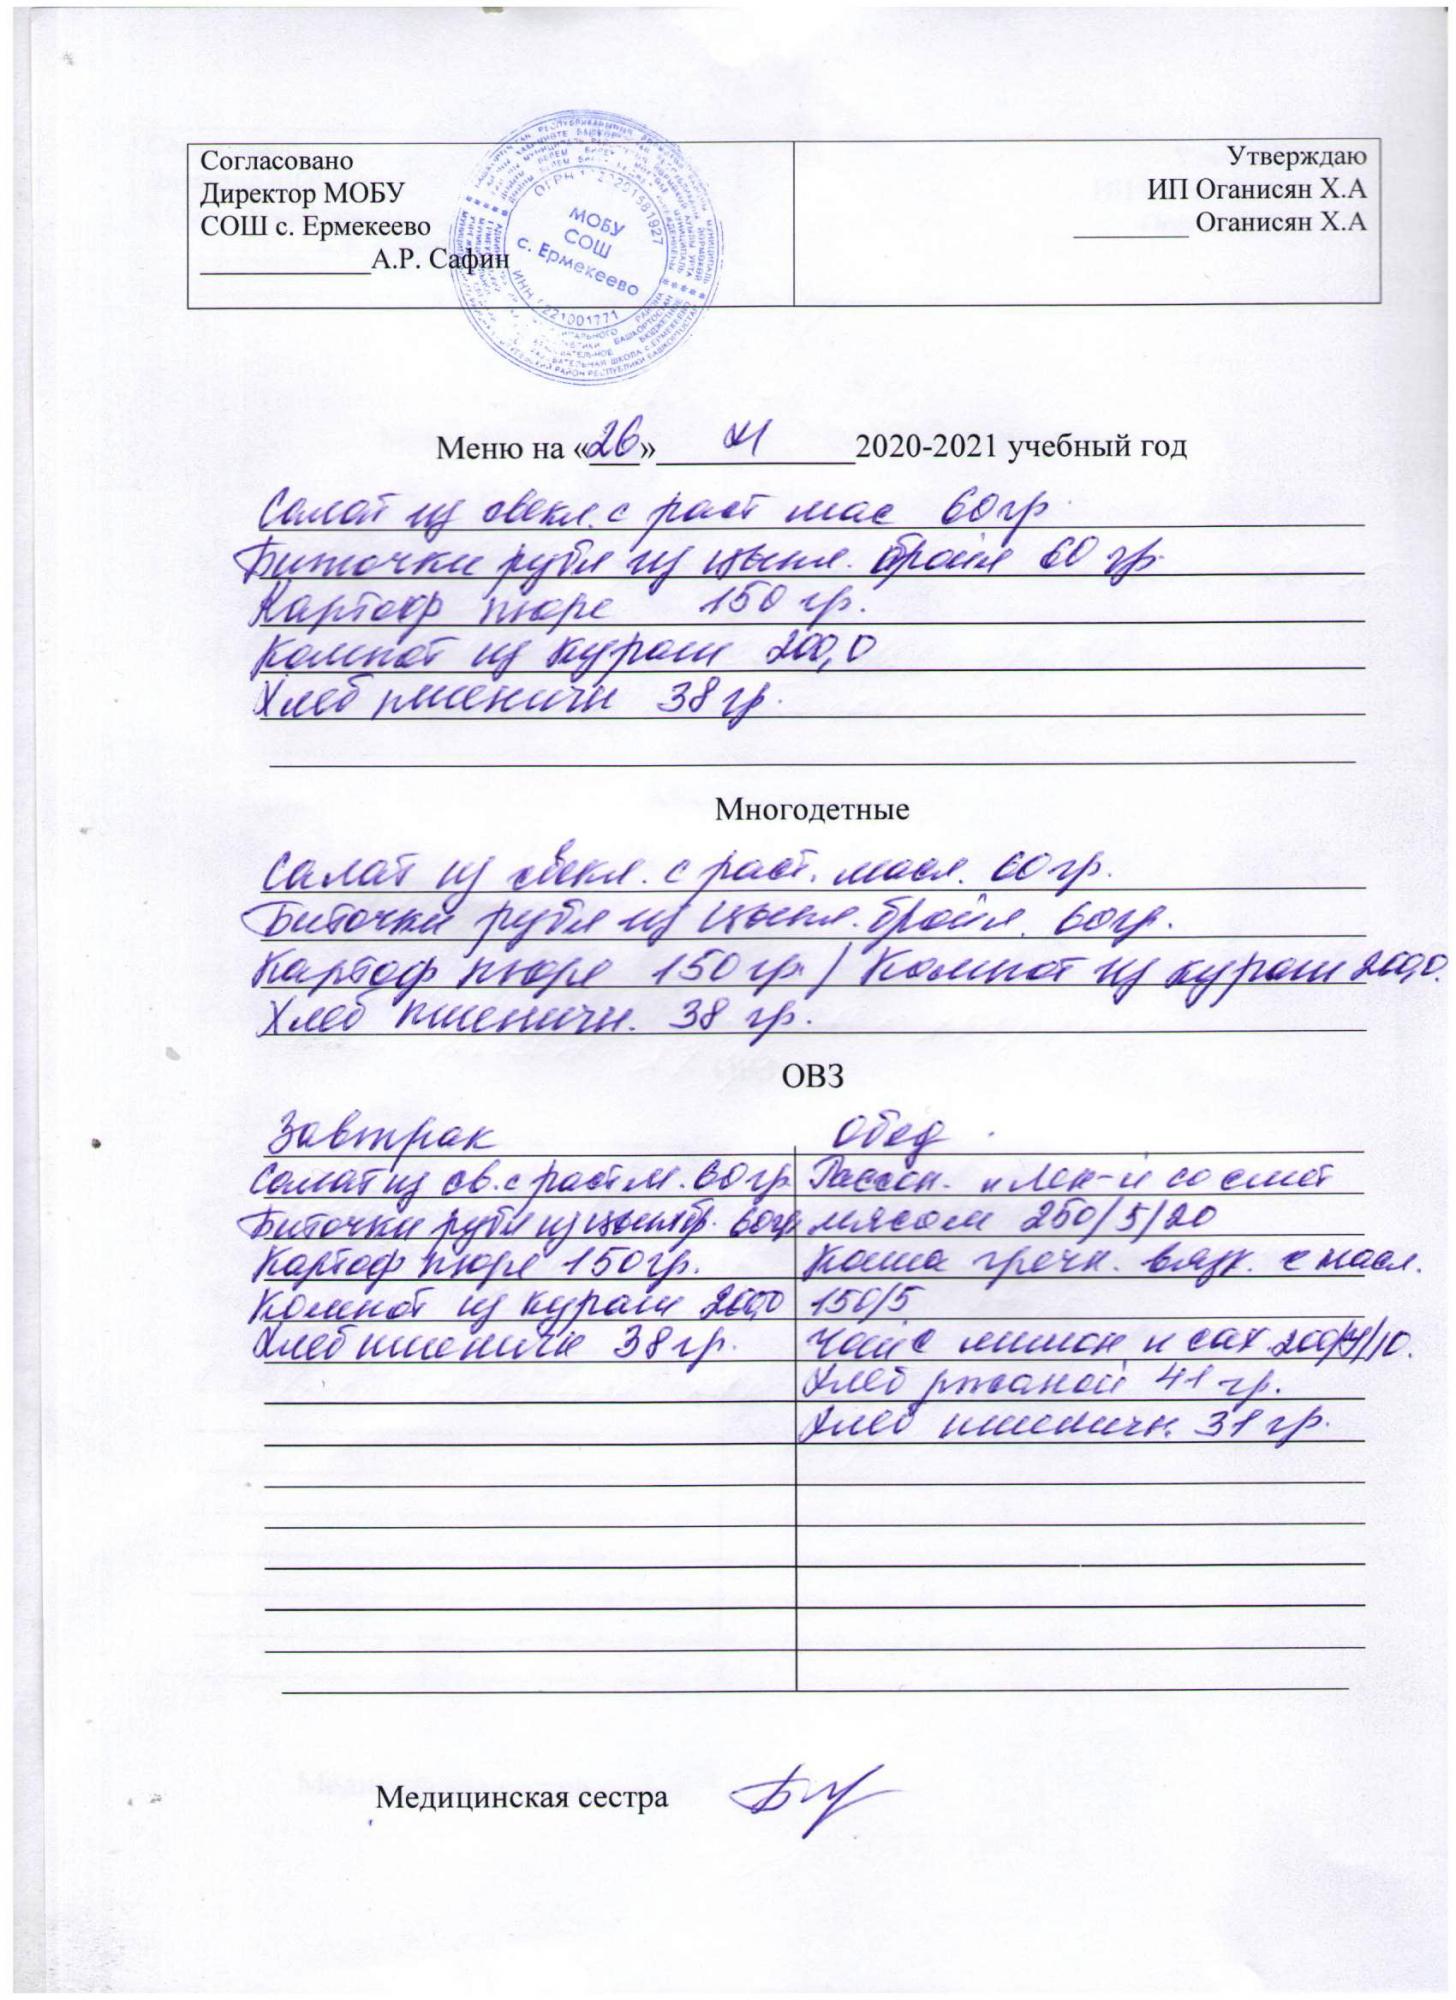 Согласовано
Директор МОБУ
СОШ с. Ермекеево
____________А.Р. Сафин
Утверждаю
ИП Оганисян Х.А
________ Оганисян Х.А
МОБУ
СОШ
с. Ермекеево
Меню на «26» 2020-2021 учебный год
Салат из свекл. с раст мас 60гр
Биточки рубл из цыпл. бройл 60 гр.
Картоф пюре 150 гр.
Компот из кураги 200,0
Хлеб пшеничн 38 гр.
Многодетные
Салат из свекл. с раст. масл. 60 гр.
Биточки рубл из цыпл. бройл. 60гр.
Картоф пюре 150 гр / Компот из кураги 200,0.
Хлеб пшеничн. 38 гр.
ОВЗ
Завтрак
Обед
Салат из св. с раст м. 60 гр.
Биточки рубл из цыпл бр. 60гр
Картоф пюре 150 гр.
Компот из кураги 200,0
Хлеб пшеничн 38 гр.
Рассол. и Лен-й со смет
мясом 250/5/20
Каша гречн. вязк. с масл.
150/5
Чай с лимон и сах. 200/4/10.
Хлеб ржаной 41 гр.
Хлеб пшеничн. 31 гр.
Медицинская сестра